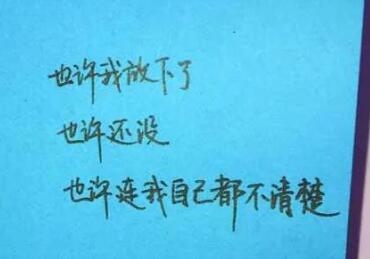 也许我放下了
也许还没
也许连我自己都不清楚